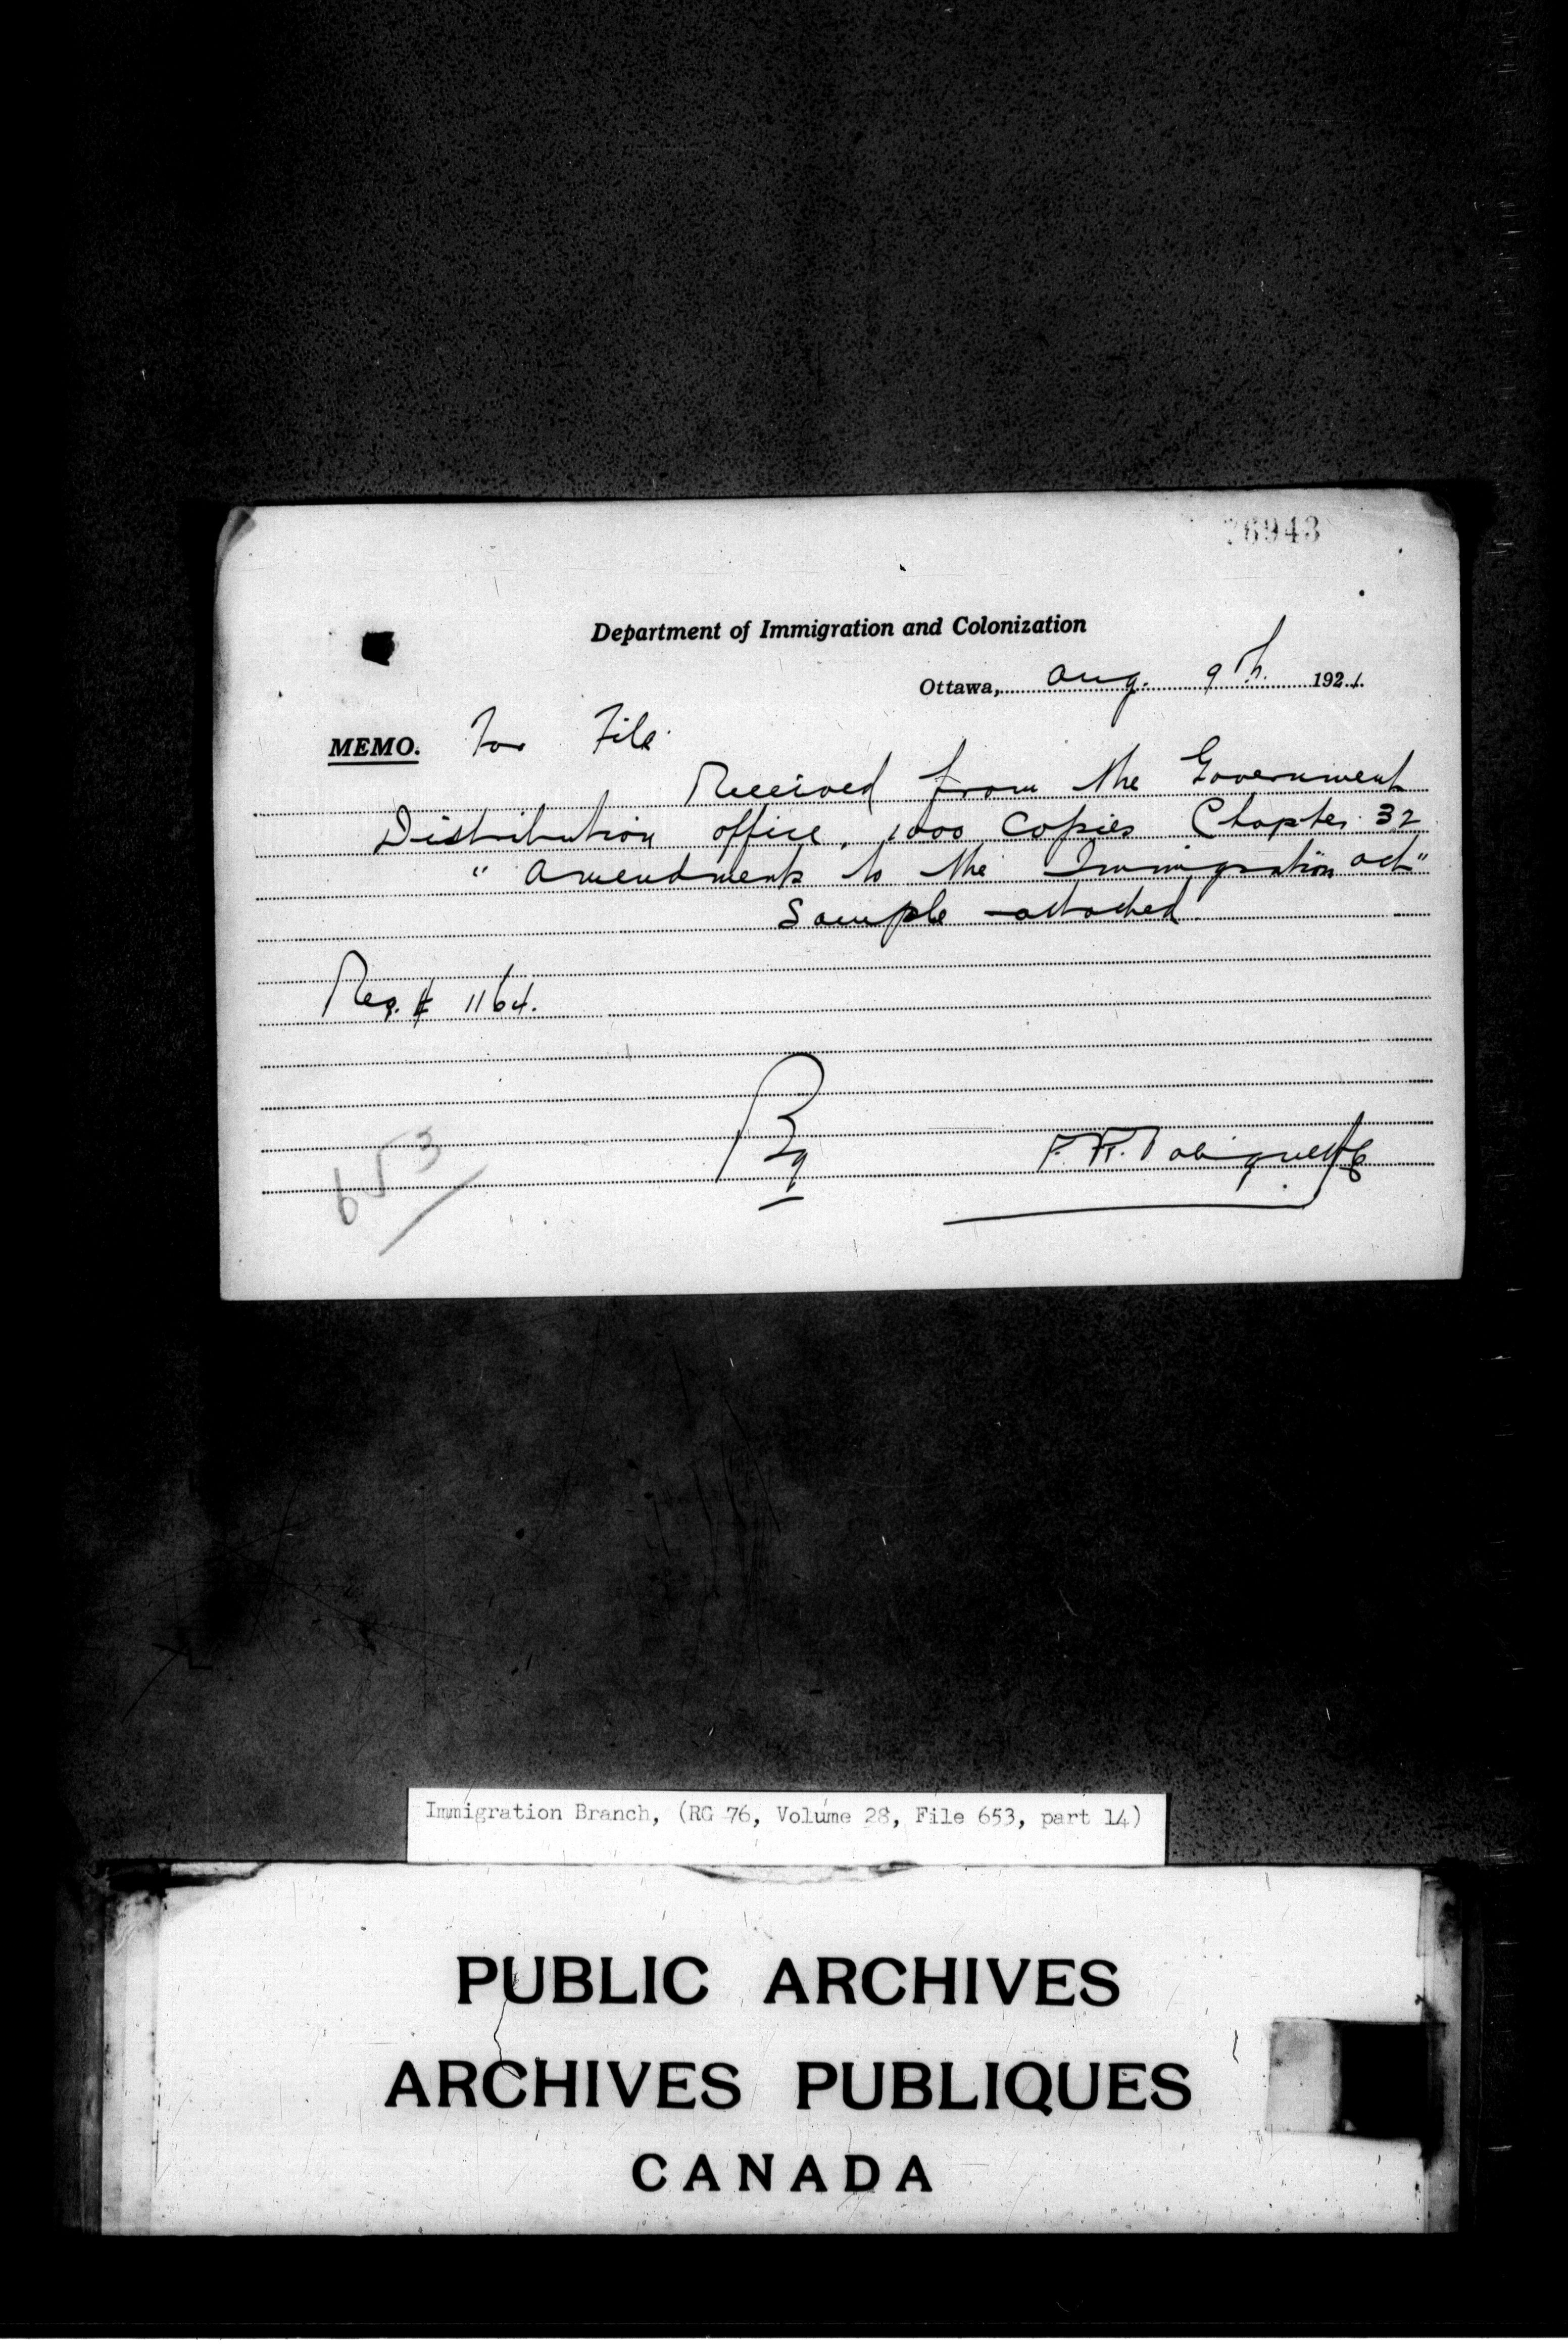 26943
Department of Immigration and Colonization
Ottawa, Aug. 9th. 1921.
MEMO. For File.
Received from the Government
Distribution office, 1000 Copies Chapter 32
"Amendments to the Immigration Act"
Sample attached.
Req. # 1164.
F. R.
653
Immigration Branch, (RG 76, Volume 28, File 653, part 14)
PUBLIC ARCHIVES
ARCHIVES PUBLIQUES
CANADA